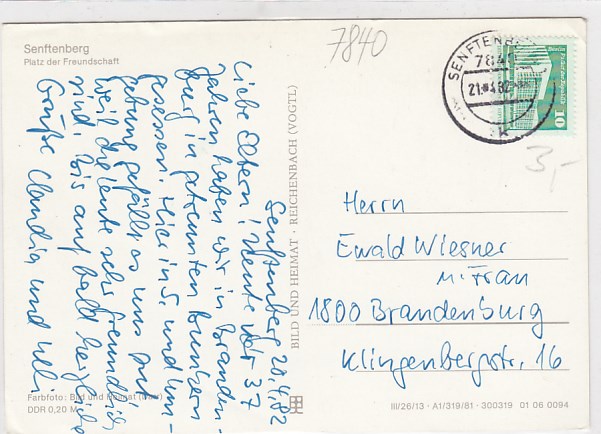 Senftenberg
Platz der Freundschaft
7840
SENFTENB
784
21.-4.82
Berlin
10
3,-
Senftenberg 20.4.82
Liebe Eltern! Heute vor 37
Jahren haben wir in Branden-
burg in getrennten Bunkern
gesessen. Hier in S. und Um-
gebung gefällt es uns gut
weil die Leute sehr freundlich
sind. Bis auf bald herzliche
Grüße Claudia und
BILD UND HEIMAT · REICHENBACH (VOGTL)
Herrn
Ewald Wiesner
u. Frau
1800 Brandenburg
Klingenbergstr. 16
Farbfoto: Bild und Heimat
DDR 0,20 M
III/26/13 · A1/319/81 · 300319 01 06 0094